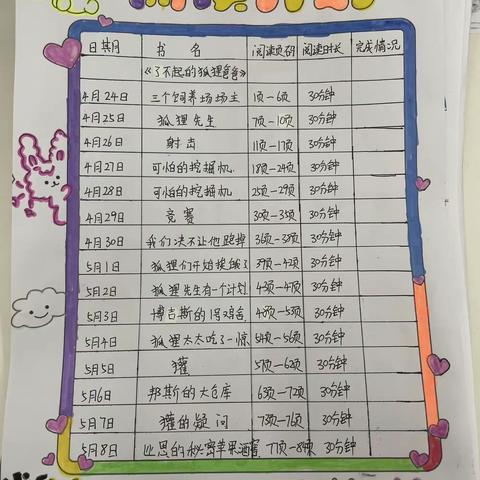 日期 书名 阅读页码 阅读时长 完成情况
《了不起的狐狸爸爸》
4月24日 三个饲养场场主 1页-6页 30分钟
4月25日 狐狸先生 7页-10页 30分钟
4月26日 射击 11页-17页 30分钟
4月27日 可怕的挖掘机 18页-24页 30分钟
4月28日 可怕的挖掘机 25页-29页 30分钟
4月29日 竞赛 30页-35页 30分钟
4月30日 我们决不让他跑掉 36页-38页 30分钟
5月1日 狐狸们开始挨饿了 39页-42页 30分钟
5月2日 狐狸先生有一个计划 30分钟
5月3日 博吉斯的1号鸡舍 30分钟
5月4日 狐狸太太吃了一惊 54页-56页 30分钟
5月5日 獾 57页-62页 30分钟
5月6日 邦斯的大仓库 63页-72页 30分钟
5月7日 獾的疑问 73页-76页 30分钟
5月8日 比恩的秘密苹果酒窖 30分钟